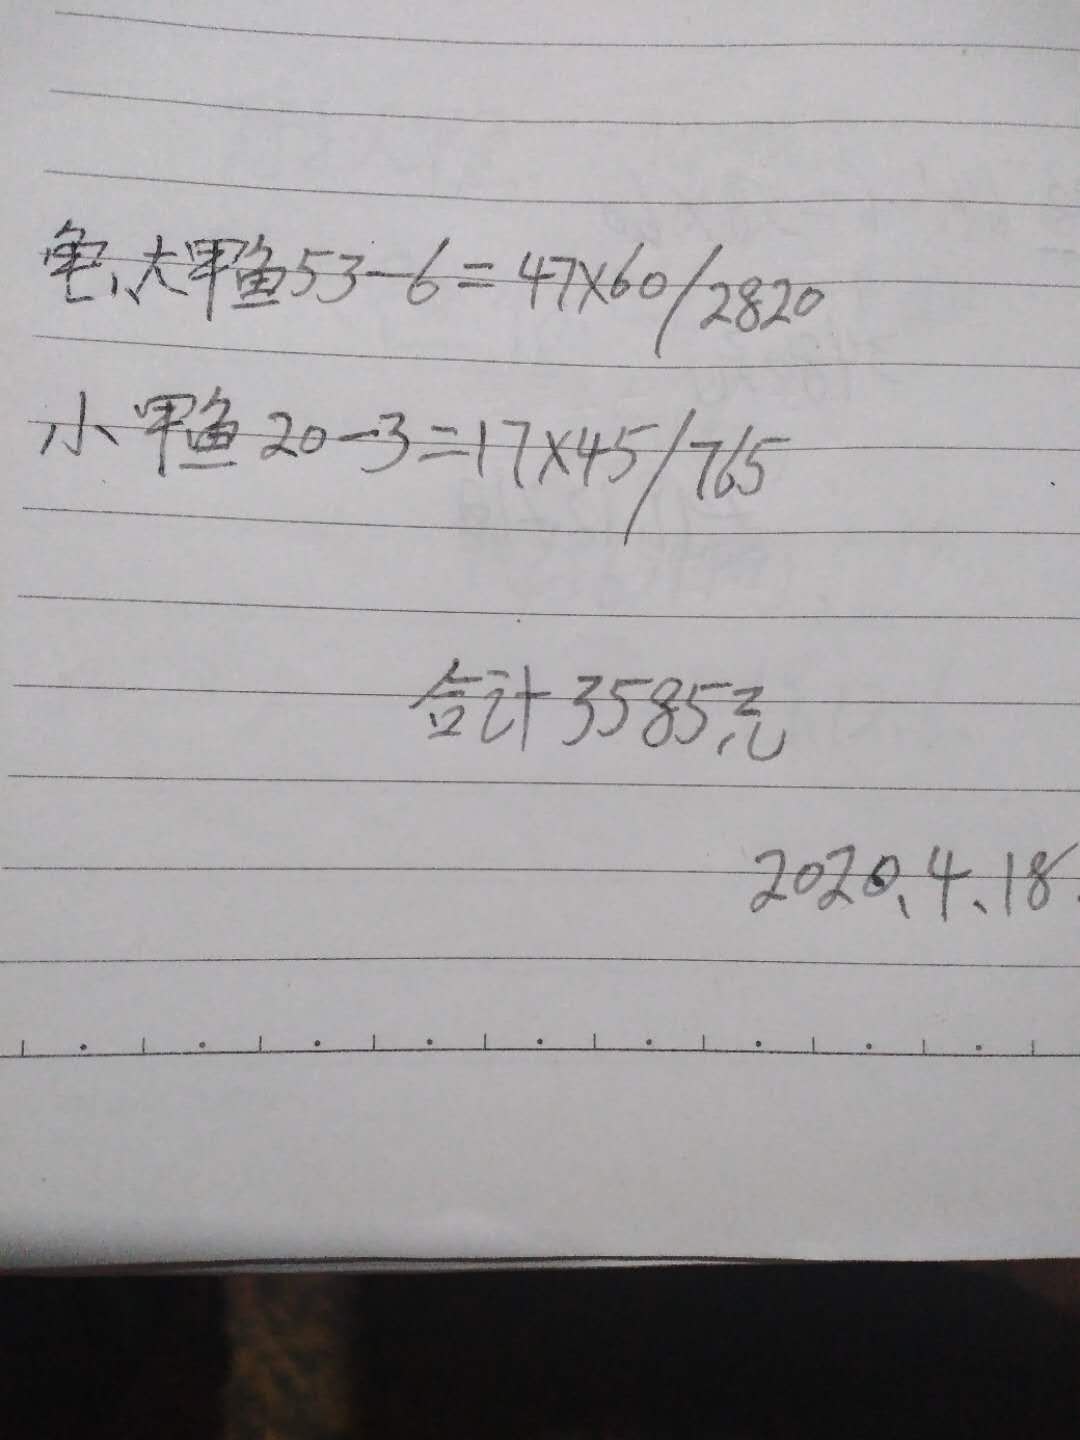 龟、大甲鱼53-6=47×60/2820
小甲鱼20-3=17×45/765
合计3585元
2020、4、18.